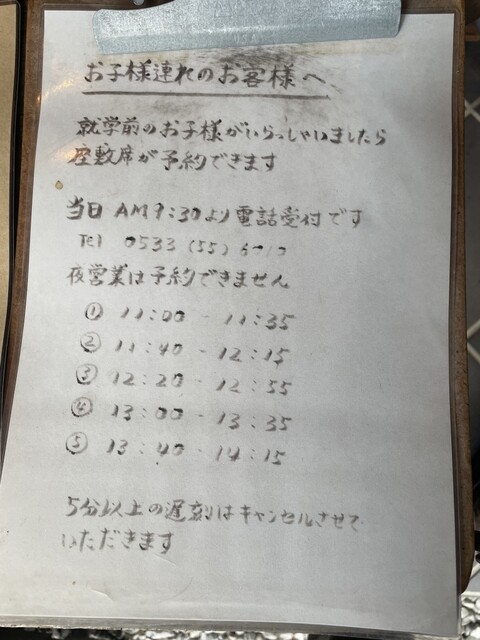 お子様連れのお客様へ
就学前のお子様がいらっしゃいましたら
座敷席が予約できます
当日 AM9:30より電話受付です
Tel 0533 (55)
夜営業は予約できません
① 11:00 - 11:35
② 11:40 - 12:15
③ 12:20 - 12:55
④ 13:00 - 13:35
⑤ 13:40 - 14:15
5分以上の遅刻はキャンセルさせて
いただきます